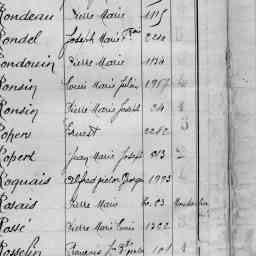 Rondeau Pierre Marie 1115
Rondel Joseph Marie
Rondouin Pierre Marie 1134
Ronsin Louis Marie Julien 1957
Ronsin Pierre Marie Joseph 24
Ropers Ernest 2282
Ropert Jean Marie Joseph 813
Roquais Alfred Victor Georges 1923
Rosais Pierre Marie
Rossé Pierre Marie Louis 1322
Rosselin François